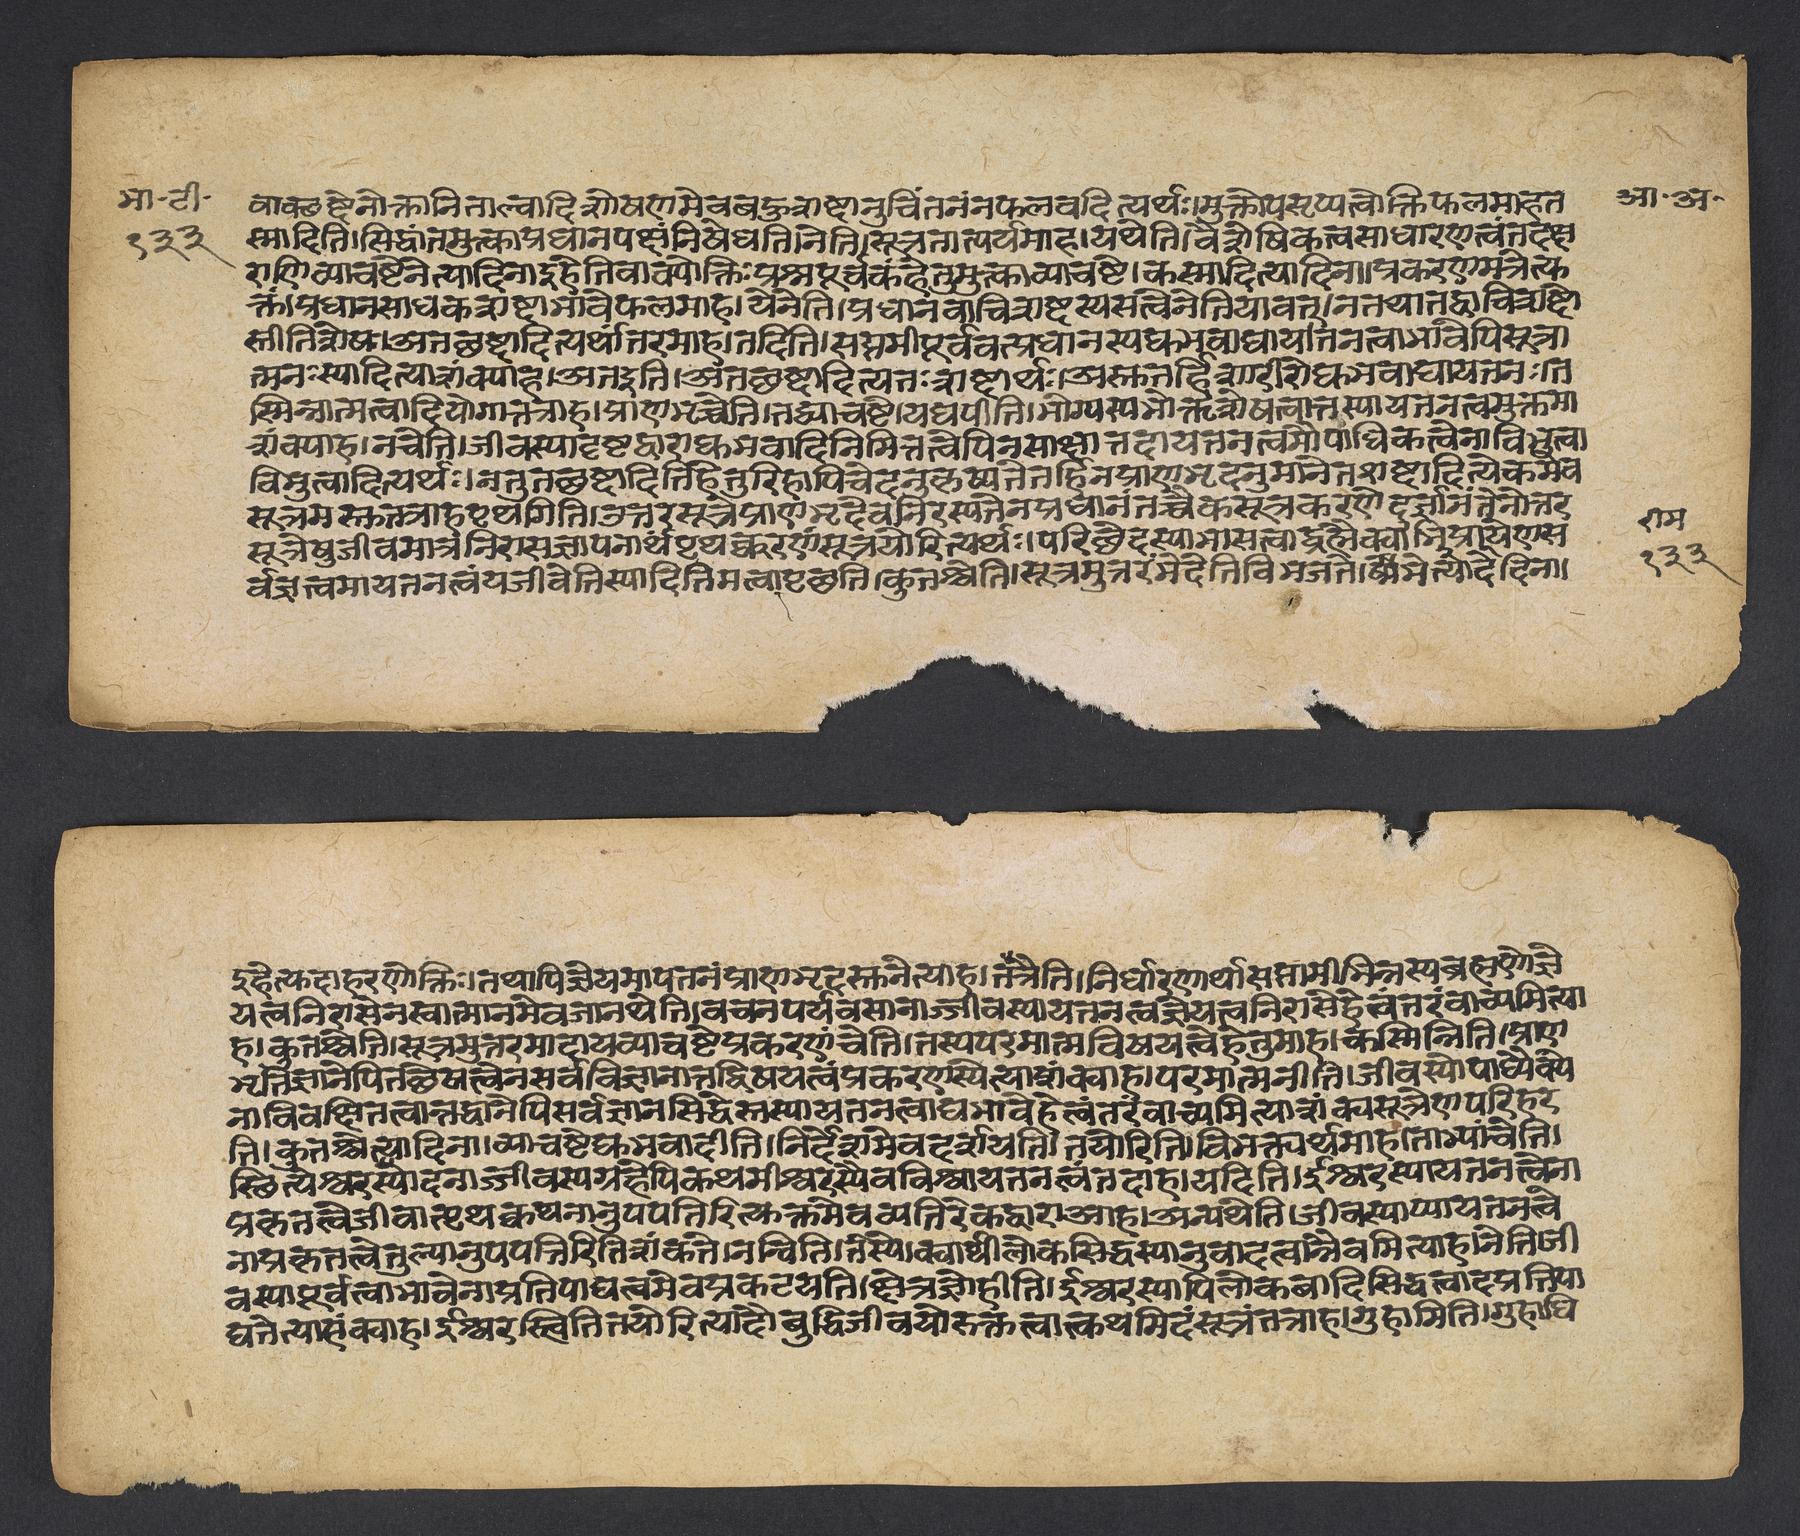 भा॰ टी॰
१३३
आ॰ अ॰
वाक्छब्देनोक्तानि ताल्वादिशोषणमेव बहुशब्दानुचिंतनं न फलवदित्यर्थः। मुक्तोपसृप्यत्वोक्तिफलमाह त
स्मादिति। सिद्धांतमुक्त्वा प्रधानपक्षं निषेधति। नेति। सूत्रतात्पर्यमाह। यथेति। वैशेषिकत्वसाधारणत्वं तदक्ष
राणि व्याचष्टे नेत्यादिना। इहेतिवाक्योक्तिः प्रश्नपूर्वकं हेतुमुक्त्वा व्याचष्टे। कस्मादित्यादिना। प्रकरणमत्रेत्यु
क्तं। प्रधानसाधकशब्दाभावे फलमाह। येनेति। प्रधानवाचिशब्दस्य सत्वेनेतियावत्। न तथा तद्वाचिशब्दो
स्तीति शेषः। अतच्छब्दादित्यर्थांतरमाह। तदिति। सप्तमीपूर्ववत्प्रधानस्य द्युभ्वाद्यायतनत्वाभावेपि सूत्रा
त्मनः स्यादित्याशंक्याह। अत इति। अतच्छब्दादित्यतः शब्दार्थः। अस्तु तर्हि शारीरो द्युभ्वाद्यायतनः। त
स्मिन्नात्मत्वादियोगात्तत्राह। प्राणभृच्चेति। तद्व्याचष्टे। यद्यपीति। भोग्यस्य भोक्तृशेषत्वात्तस्यायतनत्वमुक्तमा
शंक्याह। न चेति। जीवस्यादृष्टद्वारा द्युभ्वादिनिमित्तत्वेपि न साक्षात्तदायतनत्वमौपाधिकत्वेनाविभुत्वा
विभुत्वादित्यर्थः। ननु तच्छब्दादिति हेतुरिहापि चेदनुकृष्यते तर्हि न प्राणभृदनुमाने तशब्दादित्येकमेव
सूत्रमस्तु तत्राह पृथगिति। उत्तरसूत्रे प्राणभृदेव निरस्यते न प्रधानं तच्चैकसूत्रकरणे दुर्ज्ञानं तेनोत्तर
सूत्रेषु जीवमात्रनिरासज्ञापनार्थं पृथक्करणं सूत्रयोरित्यर्थः। परिच्छेदस्याभासत्वाद्ब्रह्मैक्याभिप्रायेण स
र्वज्ञत्वमायतनत्वं च जीवेति स्यादिति मत्वा पृच्छति। कुतश्चेति। सूत्रमुत्तरं भेदेति विभजते। भेदेत्यादिना।
राम
१३३
इहेत्युदाहरणोक्तिः। तथापि ज्ञेयमापतनं प्राणभृदस्तु नेत्याह। तत्रेति। निर्धारणार्थासप्तामी भिन्नस्य ब्रह्मणो ज्ञे
यत्वनिरासेन स्वात्मानमेव जानथेति। वचनपर्यवसानाज्जीवस्यायतनत्वज्ञेयत्वनिरासे हेत्वंतरं वाच्यमित्या
ह। कुतश्चेति। सूत्रमुत्तरमादाय व्याचष्टे प्रकरणं चेति। तस्य परमात्मविषयत्वे हेतुमाह। कस्मिन्निति। प्राण
भृति ज्ञातेपि तच्छिषत्वेन सर्वविज्ञानात्तद्विषयत्वं प्रकरणस्येत्याशंक्याह। परमात्मनीति। जीवस्योपाध्यैक्ये
नाविवक्षितत्वात्तद्ज्ञानेपि सर्वज्ञानसिद्धेस्तस्यायतनत्वाद्यभावे हेत्वंतरं वाच्यमित्याशंक्य सूत्रेण परिहर
ति। कुतश्चेत्यादिना। व्याचष्टे द्युभ्वादीति। निर्देशमेव दर्शयति। तयोरिति। विभक्त्यर्थमाह। ताभ्यां चेति।
स्थित्येश्वरस्यादनाज्जीवस्य ग्रहेपि कथमीश्वरस्यैव विश्वायतनत्वं तदाह। यदिति। ईश्वरस्यायतनत्वेना
प्रकृतत्वे जीवात्पृथक्कथनानुपपत्तिरित्युक्तमेव व्यतिरेकद्वारा आह। अन्यथेति। जीवस्याप्यायतनत्वे
नाप्रकृतत्वे तुल्यानुपपत्तिरिति शंकते। नन्विति। तस्यैक्यार्थीलोकसिद्धस्यानुवादत्वान्नैवमित्याह। नेति। जी
वस्यापूर्वत्वाभावेनाप्रतिपाद्यत्वमेव प्रकटयति। क्षेत्रज्ञोहीति। ईश्वरस्यापि लोकवादिसिद्धत्वादप्रतिपा
द्यतेत्याशंक्याह। ईश्वरस्त्विति तयोरित्यादौ बुद्धिजीवयोरुक्तत्वात्कथमिदं सूत्रं तत्राह। गुहामिति। गुहाधि